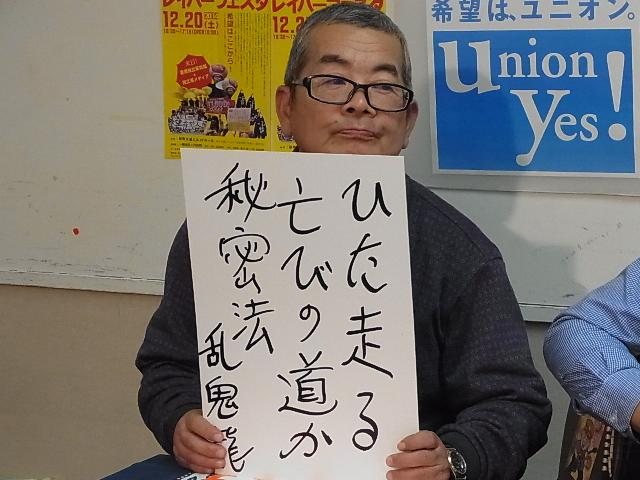 レイバーフェスタ
12.20(土)
希望はここから!
レイバーフェスタ
希望は、ユニオン。
union
yes!
ひた走る
亡びの道か
秘密法
乱鬼龍